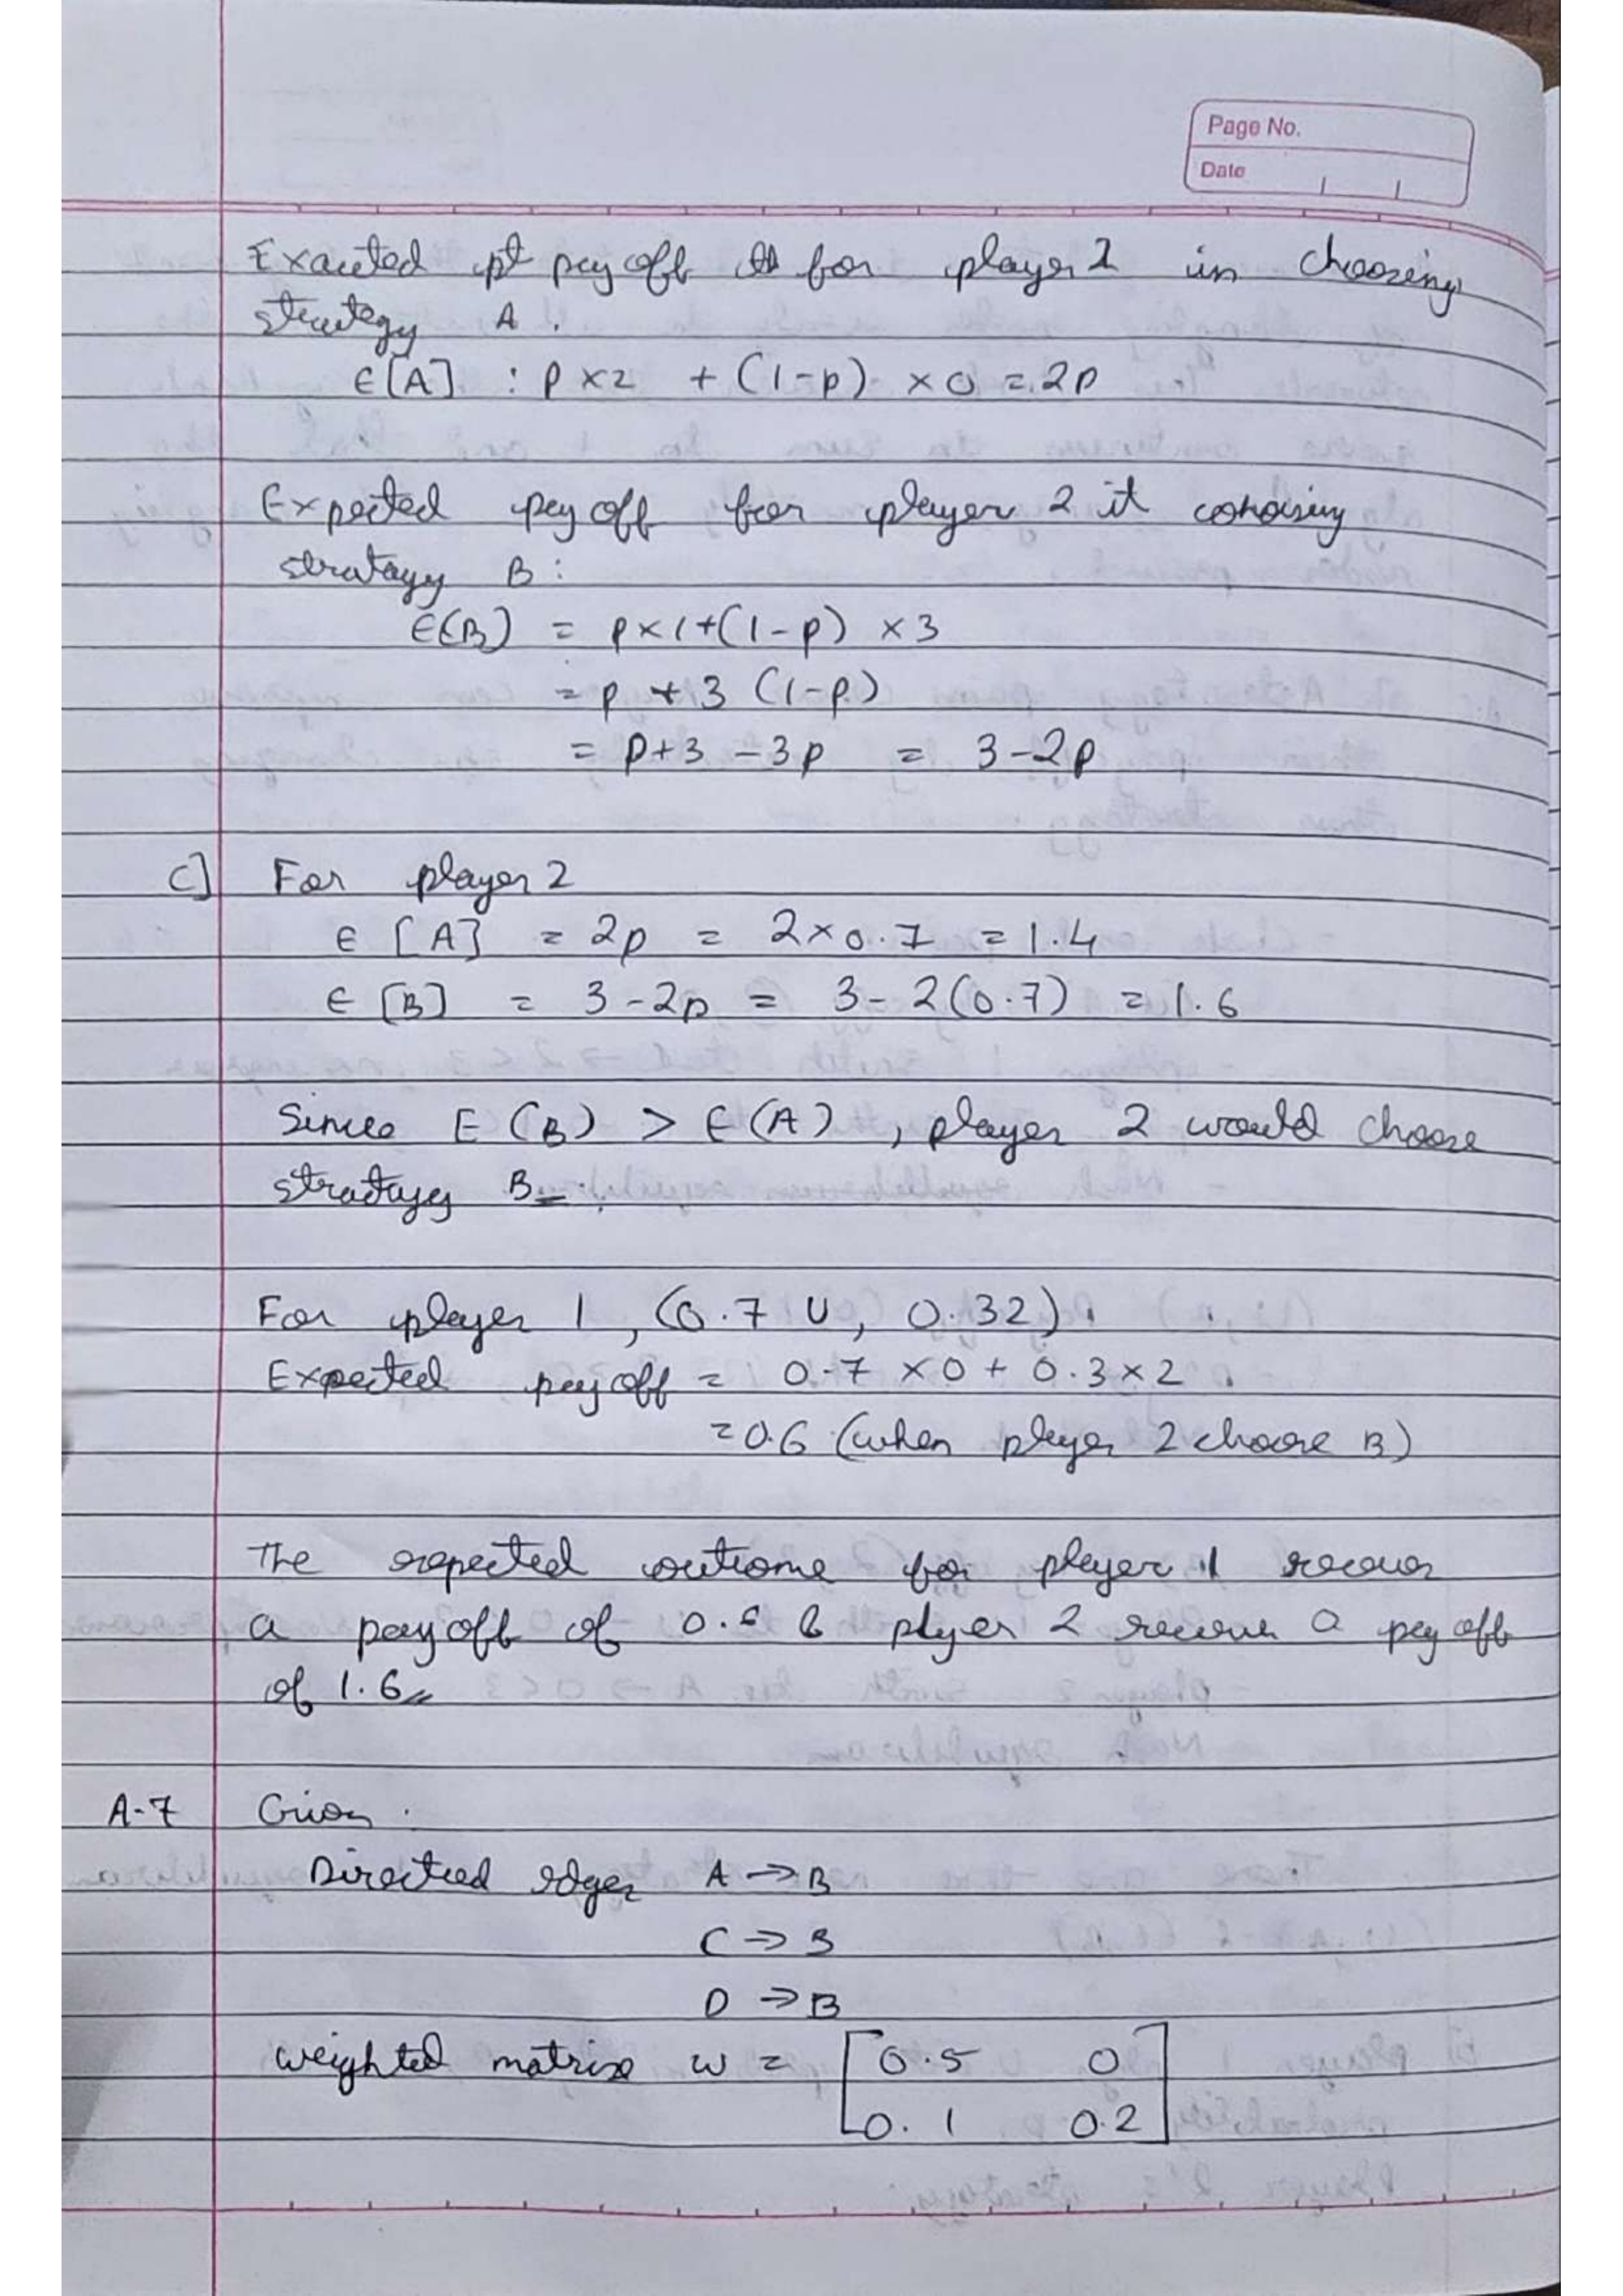 Page No.
Date
Exacted pt pay off for player 2 in choosing
strategy A.
E[A] : P x 2 + (1-p) x 0 = 2p
Expected pay off for player 2 it
stratagy B:
E(B) = p x 1 + (1-p) x 3
= p + 3 (1-p)
= p+3 - 3p = 3-2p
C] For player 2
E [A] = 2p = 2 x 0.7 = 1.4
E [B] = 3 - 2p = 3 - 2(0.7) = 1.6
Since E (B) > E(A), player 2 would choose
stratagy B
For player 1, (0.7 U, 0.32).
Expected pay off = 0.7 x 0 + 0.3 x 2.
= 0.6 (when player 2 choose B)
The expected outcome for player 1
a pay off of 0.6 & plyer 2 a pay off
of 1.6
A-7 Given.
Directed edges A → B
C → B
D → B
weighted matrix w = [0.5 0
0.1 0.2]